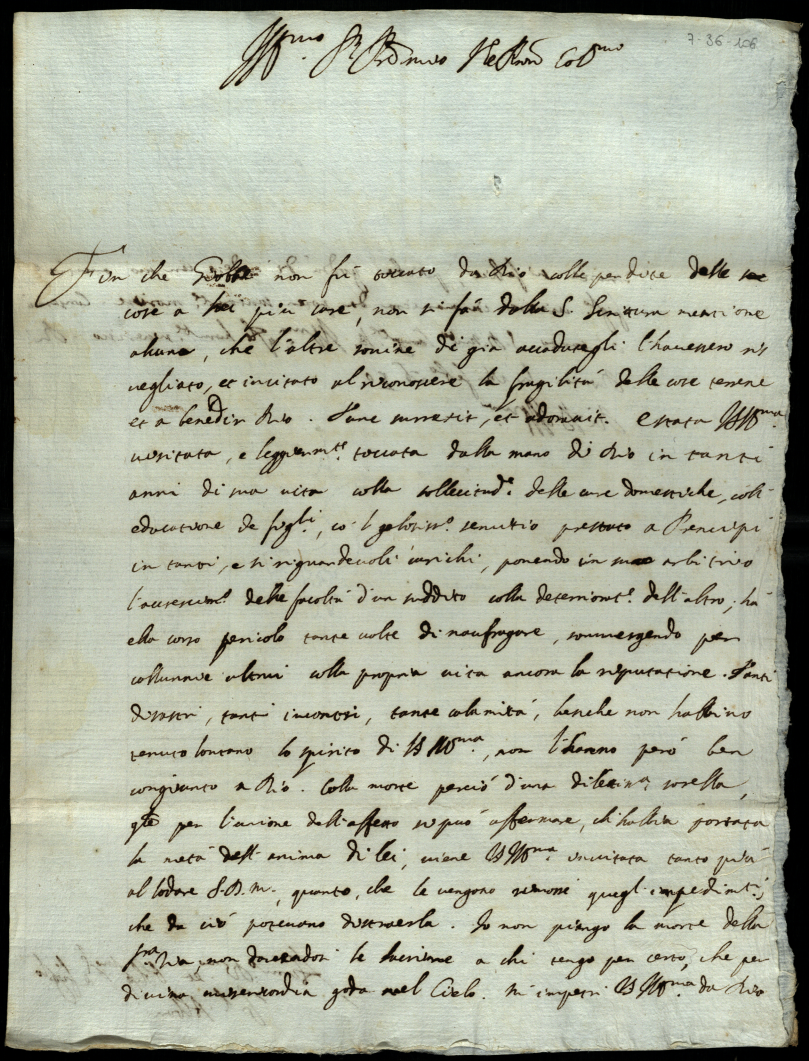 7-36-106
Ill.mo Sr. Pron. mio
Fin che Giobbe non fù toccato da Dio colla perdita delle
cose a lui più care, non si fà dalla S. Scrittura mentione
alcuna, che l'altre rovine di già accadutegli l'havessero ris
vegliato, et incitato al riconoscere la fragilità delle cose terrene
et a benedir Dio. Tunc surrexit, et adoravit. E stata V.S. Ill.ma
visitata, e leggierm.te toccata dalla mano di Dio in tanti
anni di sua vita colla sollecitud.e delle cure domestiche, coll'
educatione de figli, co 'l gelosiss.o servitio prestato a Prencipi
in tanti, e si riguardevoli carichi, ponendo in suo arbitrio
l'accrescim.to delle facoltà d'un suddito colla deteriorat.e dell'altro; hà
ella corso pericolo tante volte di naufragare, sommergendo per
callunnie altrui colla propria vita ancora la riputatione. Tanti
disastri, tanti incontri, tante calamità, benche non habbino
tenuto lontano lo spirito di V.S. Ill.ma, non l'hanno però ben
congiunto a Dio. Colla morte perciò d'una dilettiss.a sorella,
q.le per l'unione dell'affetto si può affermare, ch'habbia portata
la metà dell'anima di lei, viene V.S. Ill.ma invitata tanto più
al lodare S.D.M., quanto, che le vengono rimossi quegl'impedim.ti,
che da ciò potevano distraerla. Io non piango la morte della
Sra. Zia, non dovendosi le lacrime a chi tengo per certo, che per
divina misericordia goda nel Cielo. Mi impetri V.S. Ill.ma da Dio